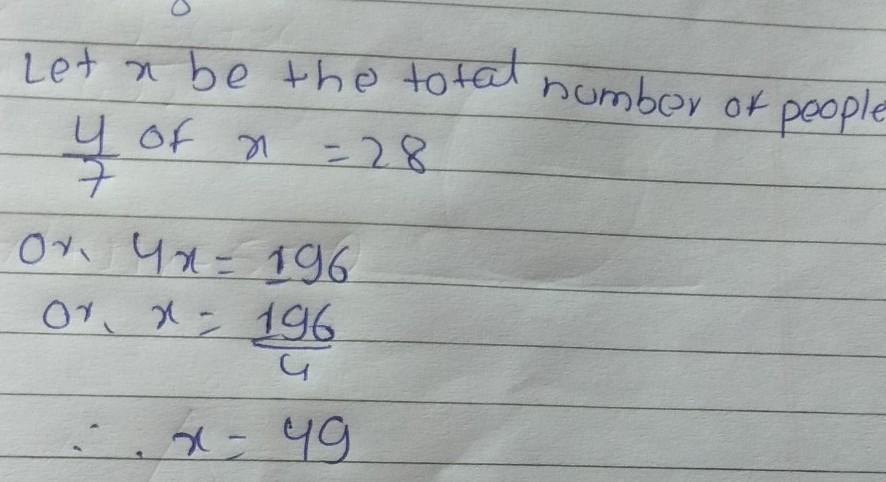 Let x be the total number of people
4/7 of x = 28
Or, 4x = 196
Or, x = 196/4
∴ x = 49